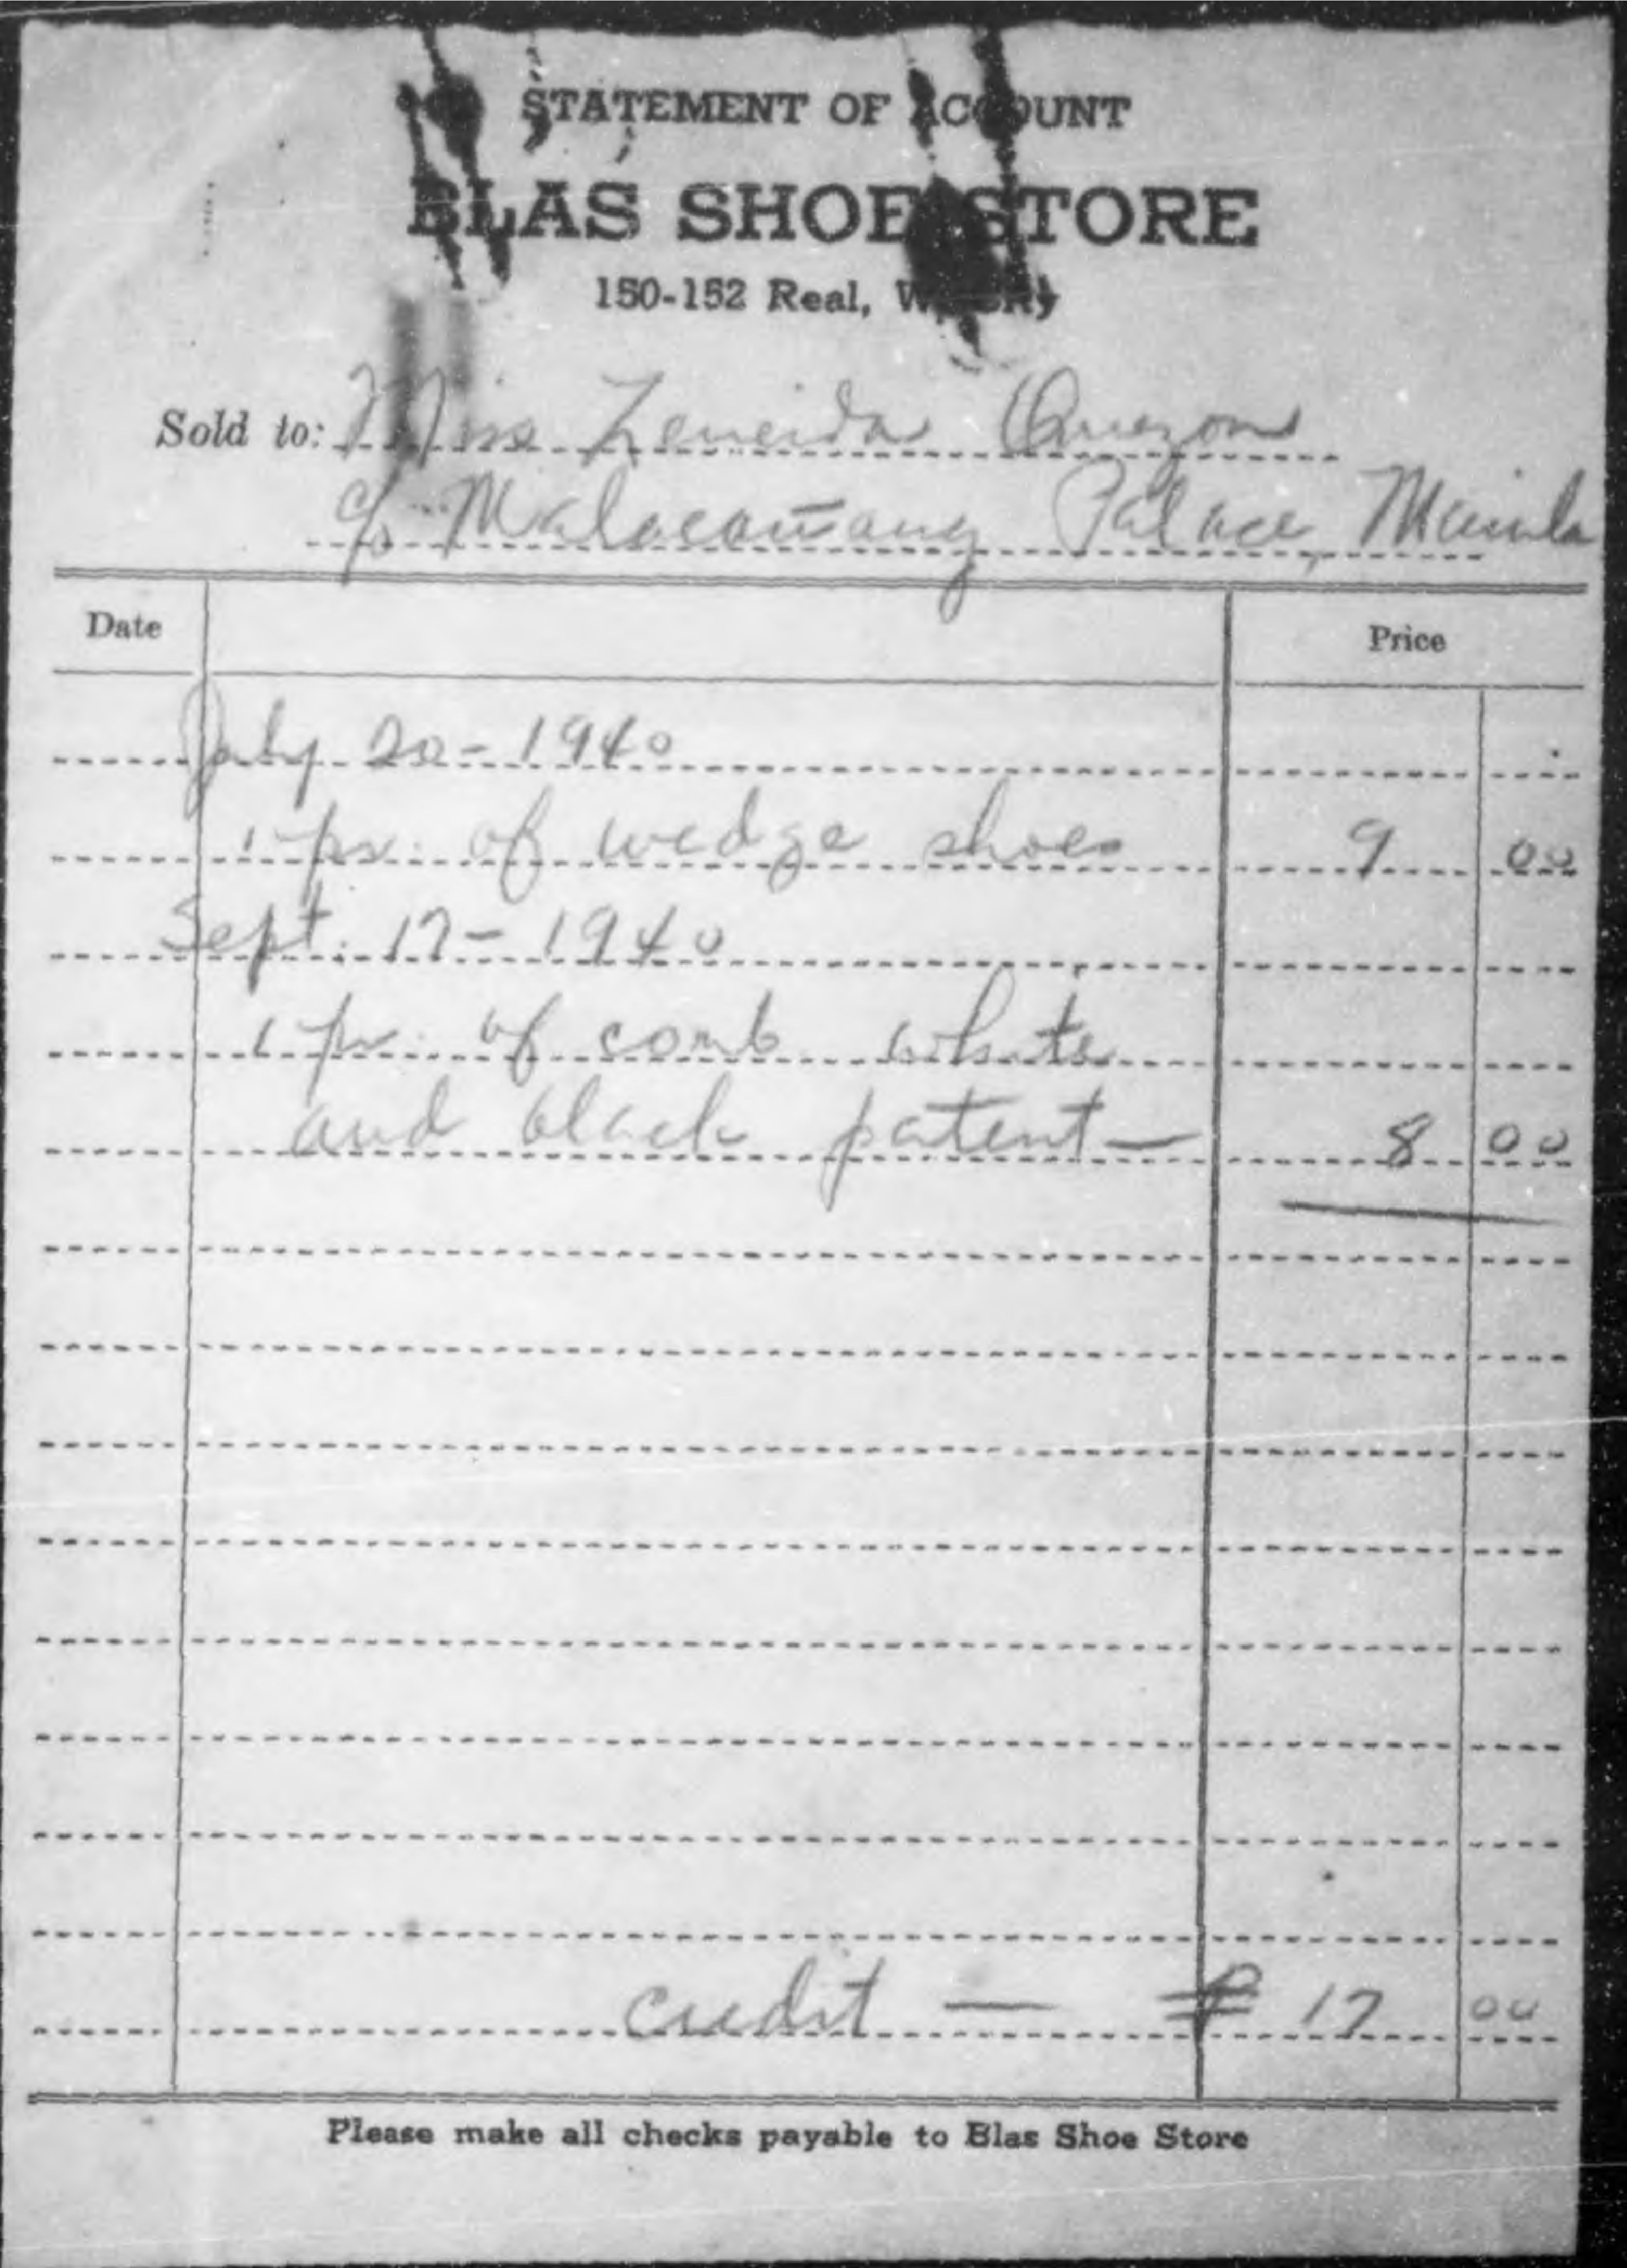 STATEMENT OF ACCOUNT
BLAS SHOE STORE
150-152 Real, W. City
Sold to: Miss Zeneida Quezon
c/o Malacañang Palace, Manila
Date Price
July 20 - 1940
1 pr. of wedge shoes 9 00
Sept. 17 - 1940
1 pr. of comb white
and black patent — 8 00
credit — ₱ 17 00
Please make all checks payable to Blas Shoe Store